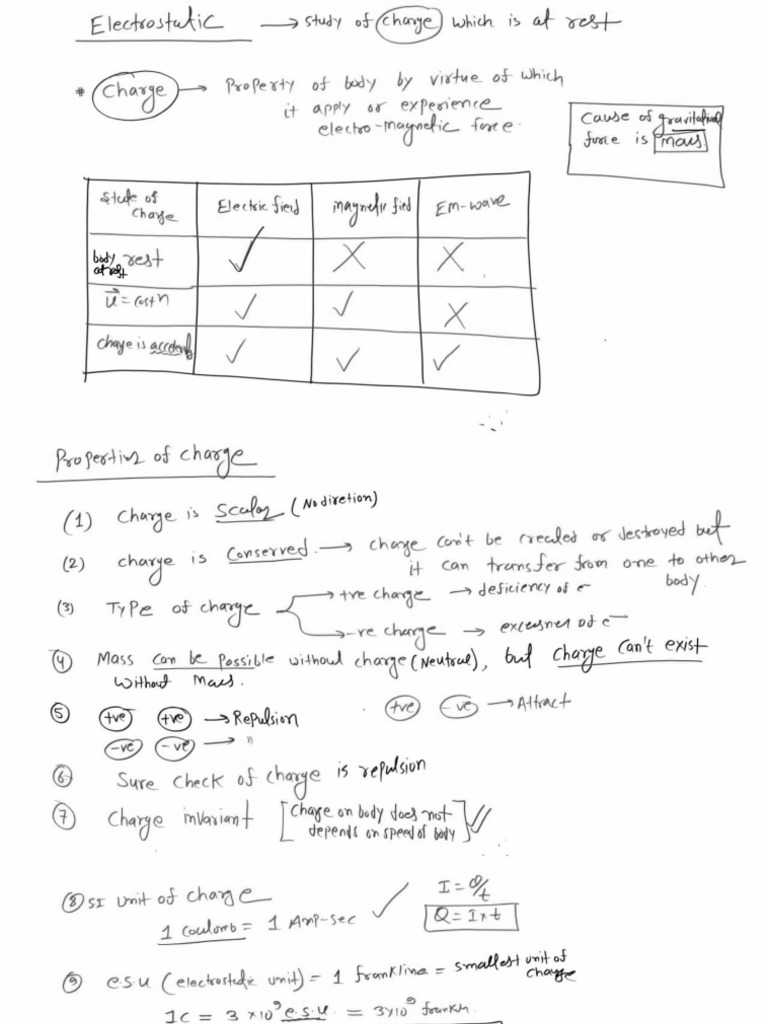 Electrostatic → study of charge which is at rest
* Charge → Property of body by virtue of which
it apply or experience
electro-magnetic force.
Cause of gravitational
force is mass
State of Charge | Electric field | magnetic field | EM-wave
body at rest rest | ✓ | X | X
u⃗ = constn | ✓ | ✓ | X
charge is | ✓ | ✓ | ✓
Properties of charge
(1) Charge is Scalar (No diretion)
(2) charge is Conserved. → charge can't be created or destroyed but
it can transfer from one to other
body.
(3) Type of charge → +ve charge → deficiency of e⁻
→ -ve charge → of e⁻
(4) Mass can be possible without charge (Neutral), but Charge can't exist
without Mass.
(5) +ve +ve → Repulsion +ve -ve → Attract
-ve -ve → "
(6) Sure check of charge is repulsion
(7) Charge invariant [Charge on body does not
depends on speed of body] ✓✓
(8) SI unit of charge
I = Q/t
1 Coulomb = 1 Amp-sec ✓ Q = I×t
(9) e.s.u (electrostatic unit) = 1 frankline = smallest unit of
charge
1C = 3 ×10⁹ e.s.u. = 3×10⁹